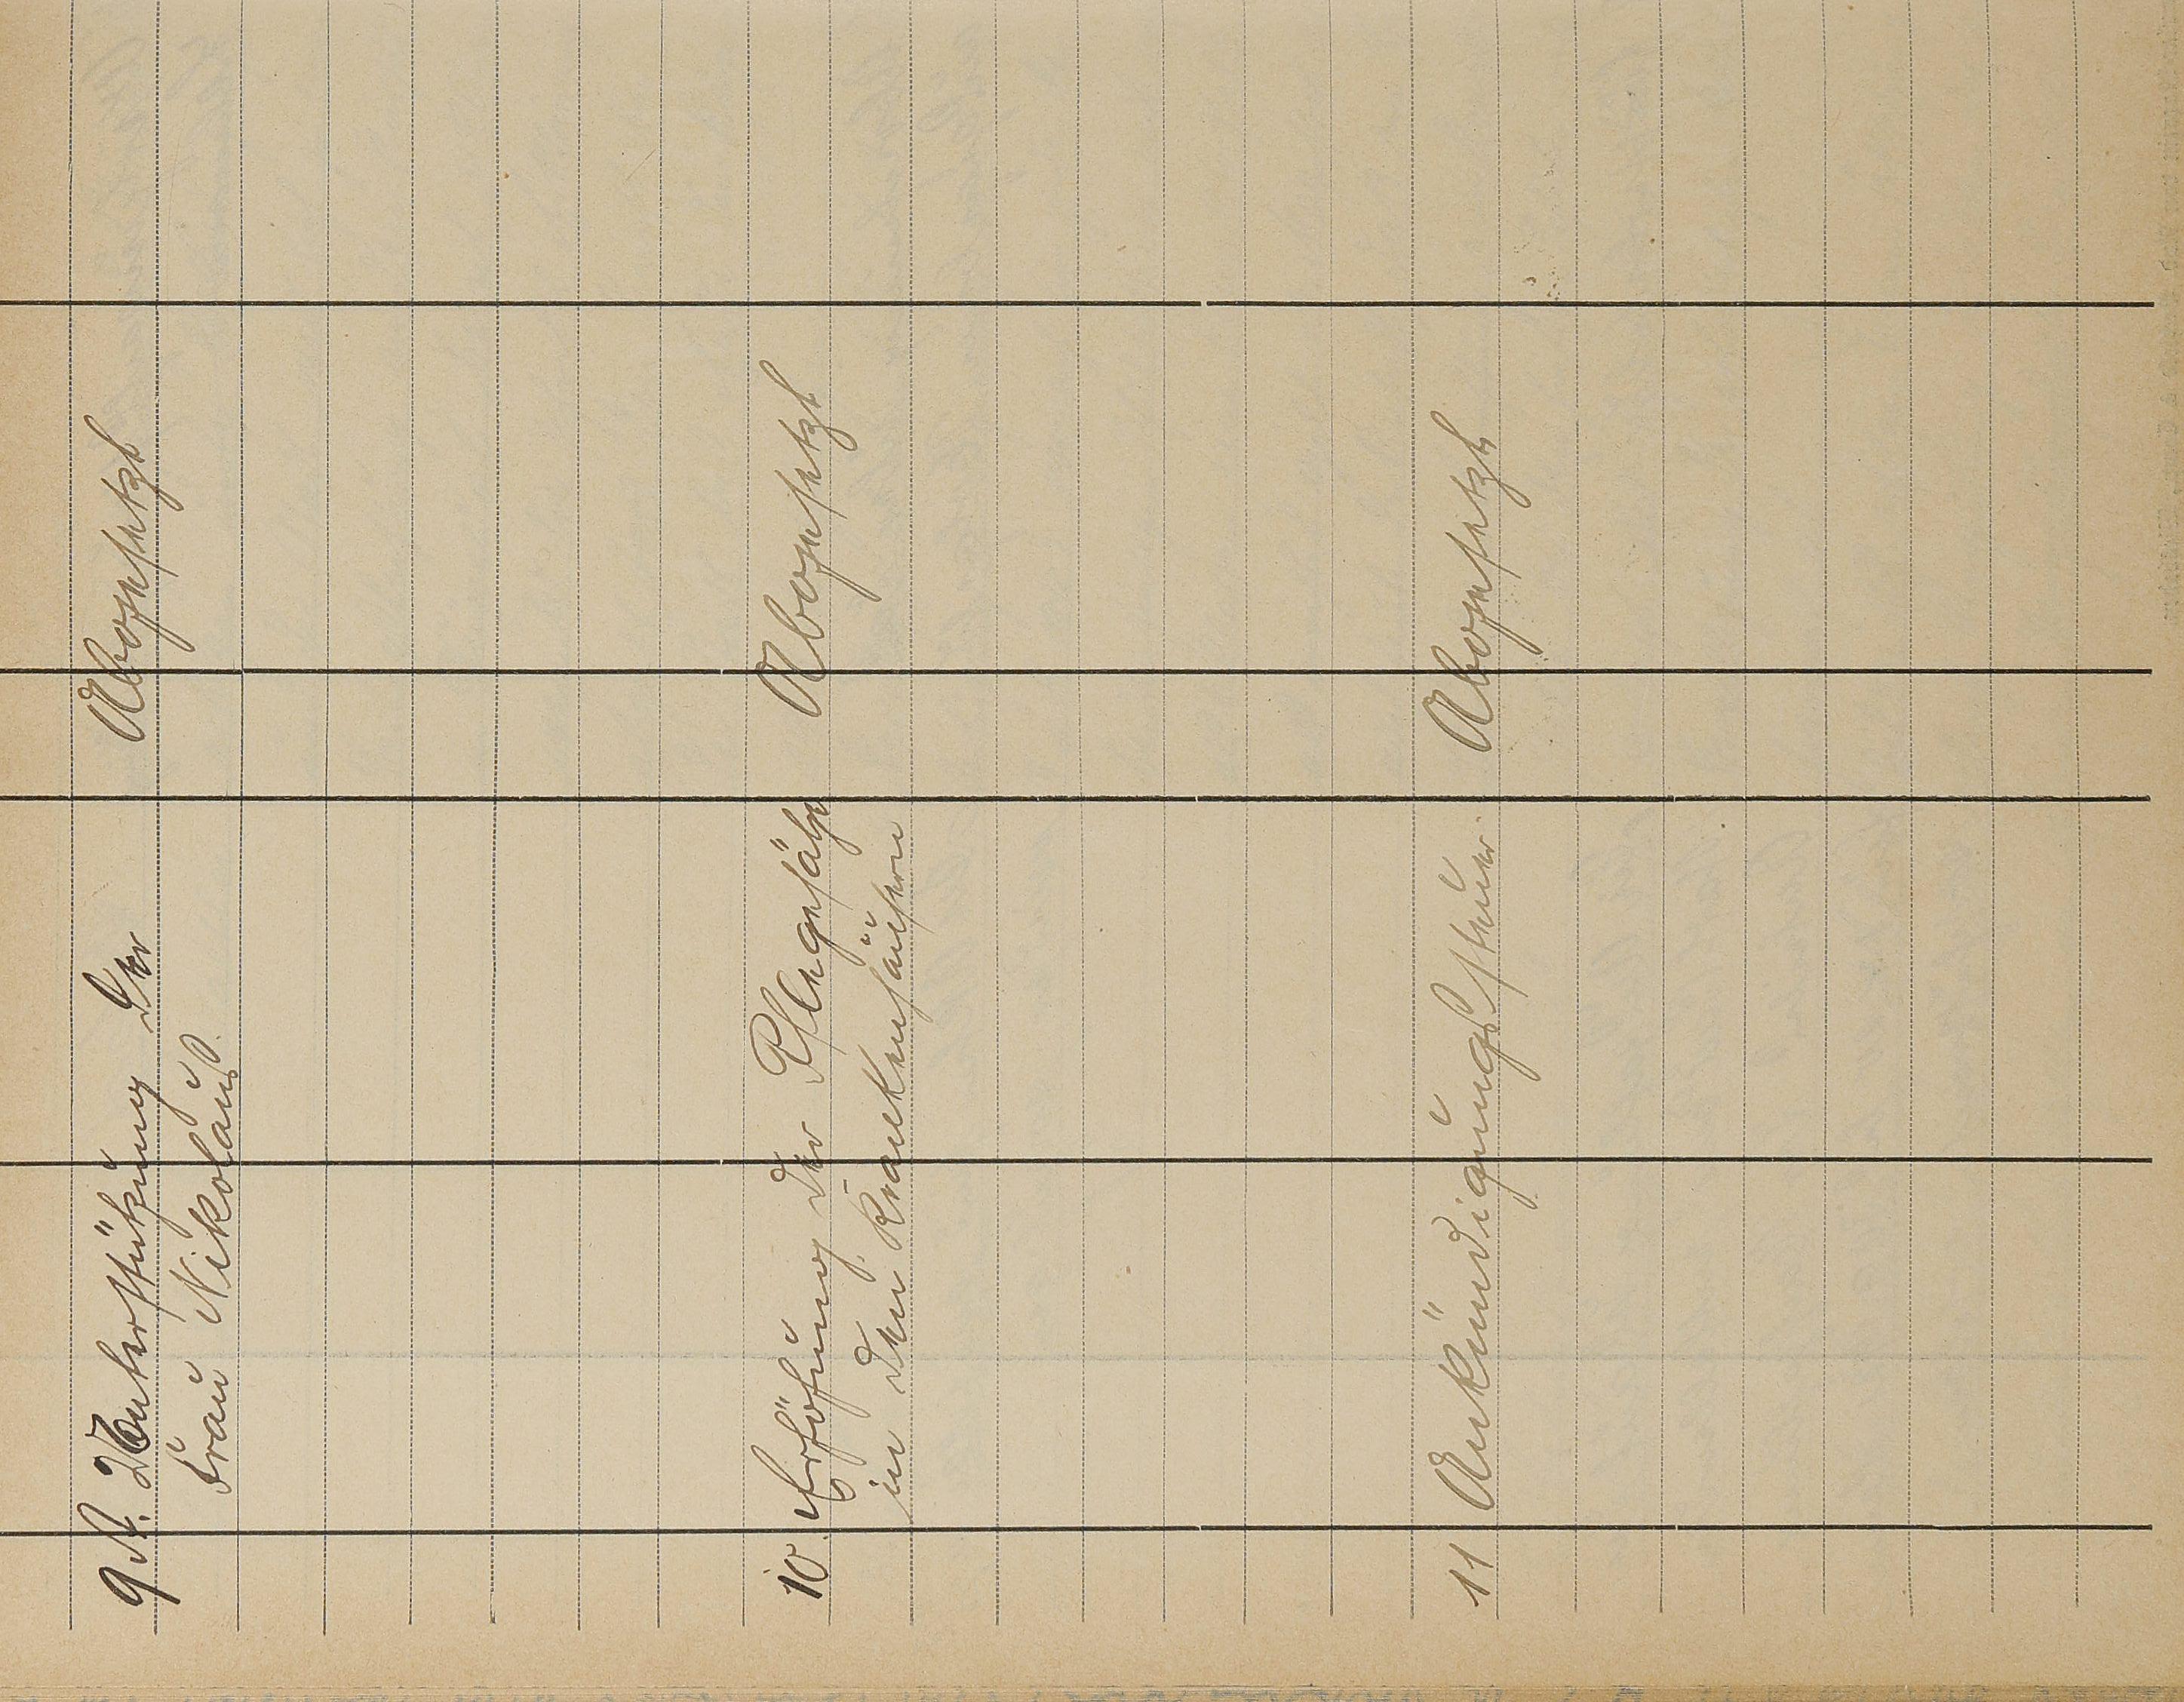 9 A. Unterstützung der Abgesetzt
Frau Nikolaus.
10. Erhöhung der Pflegesätze Abgesetzt
in den Krankenhäusern
11 Ankündigungssteuer. Abgesetzt